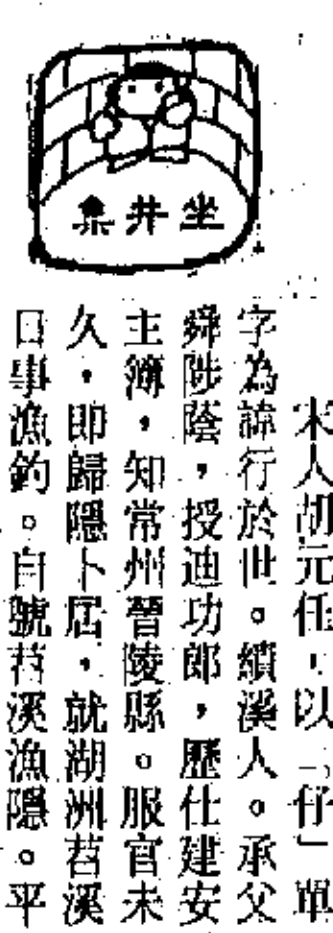 坐井集
宋人胡元任,以「仔」單
字為諱行於世。績溪人。承父
舜陟蔭,授迪功郎,歷仕建安
主簿,知常州晉陵縣。服官未
久,即歸隱卜居,就湖洲苕溪
日事漁釣。自號苕溪漁隱。平